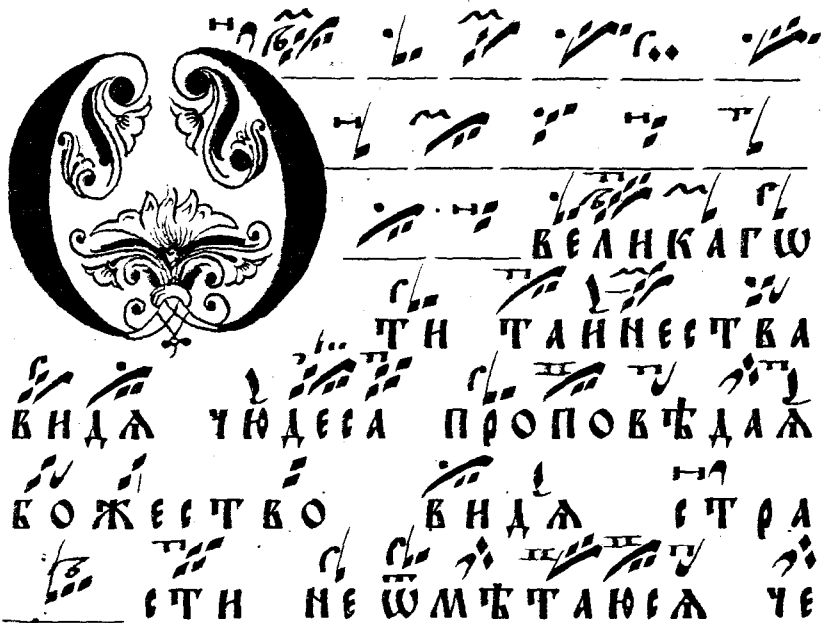 О
великагѡ
ти таинества
видя чюдеса проповѣдая
божество видя стра
сти неѿмѣтаюся че